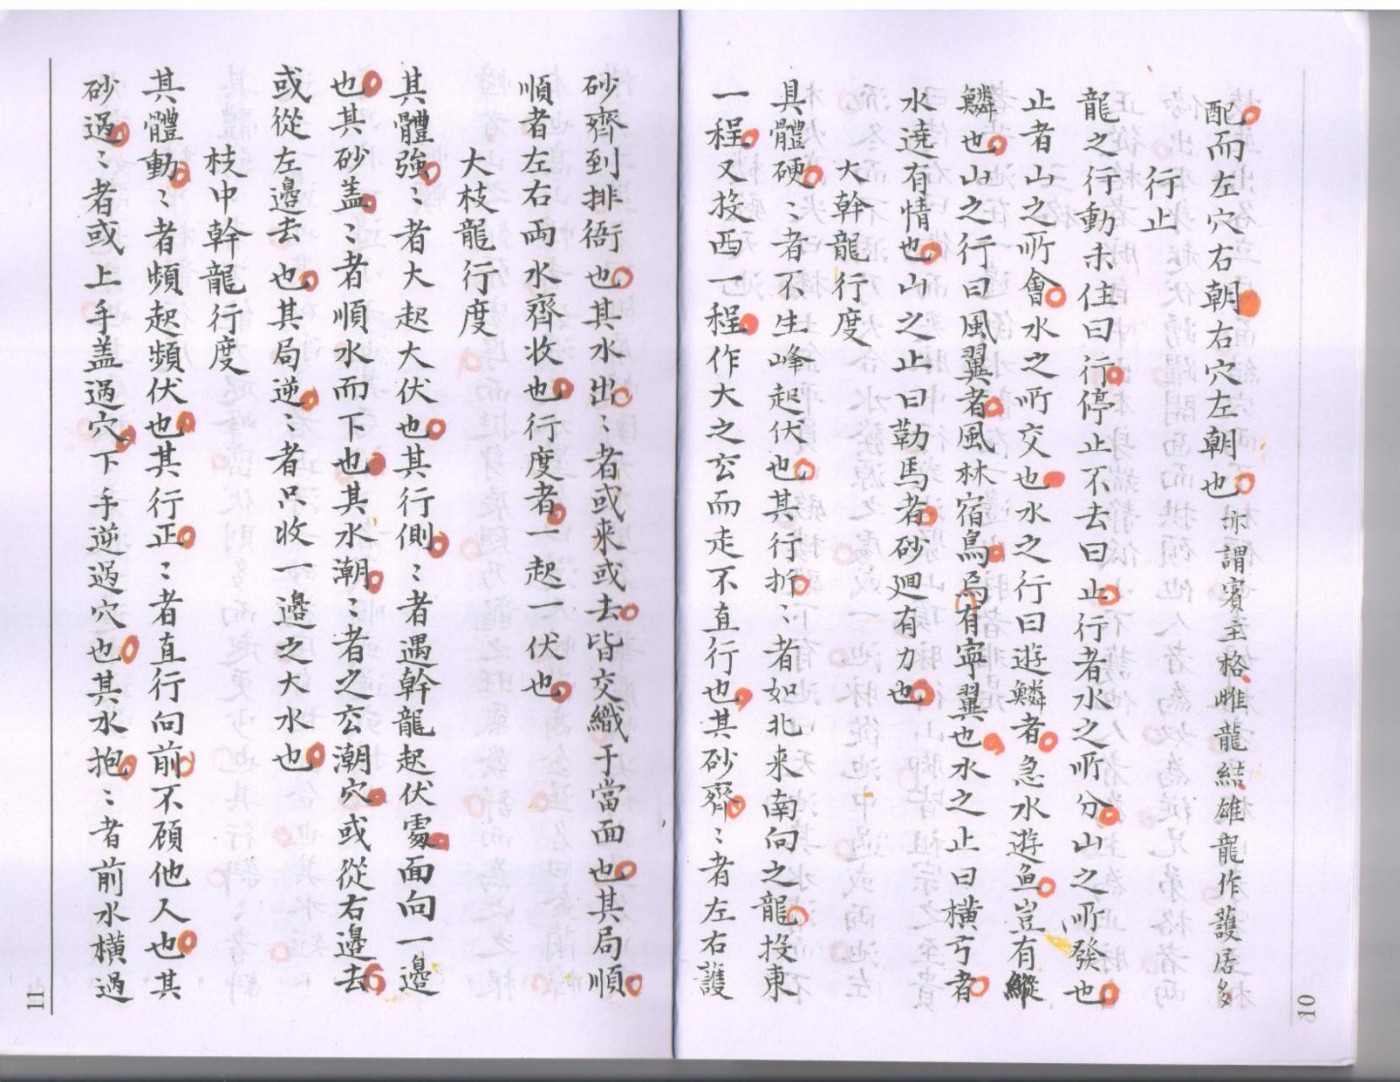 配而左穴右朝右穴左朝也所謂賓主格惟龍結雄龍作護居多
行止
龍之行動未住曰行停止不去曰止行者水之所分山之所發也
止者山之所會水之所交也水之行曰遊鱗者急水遊魚豈有縱
鱗也山之行曰風翼者風林宿鳥烏有寧翼也水之止曰橫弓者
水遶有情也山之止曰勒馬者砂廻有力也
大幹龍行度
具體硬〻者不生峰起伏也其行折〻者如北来南向之龍投東
一程又投西一程作大之玄而走不直行也其砂齊〻者左右護
10
砂齊到排衙也其水出〻者或来或去皆交織于當面也其局順〻
順者左右兩水齊收也行度者一起一伏也
大枝龍行度
其體強〻者大起大伏也其行側〻者遇幹龍起伏處面向一邊
也其砂盖〻者順水而下也其水潮〻者之玄潮穴或從右邊去
或從左邊去也其局逆〻者只收一邊之大水也
枝中幹龍行度
其體動〻者頻起頻伏也其行正〻者直行向前不顧他人也其
砂過〻者或上手盖過穴下手逆過穴也其水抱〻者前水橫過
11